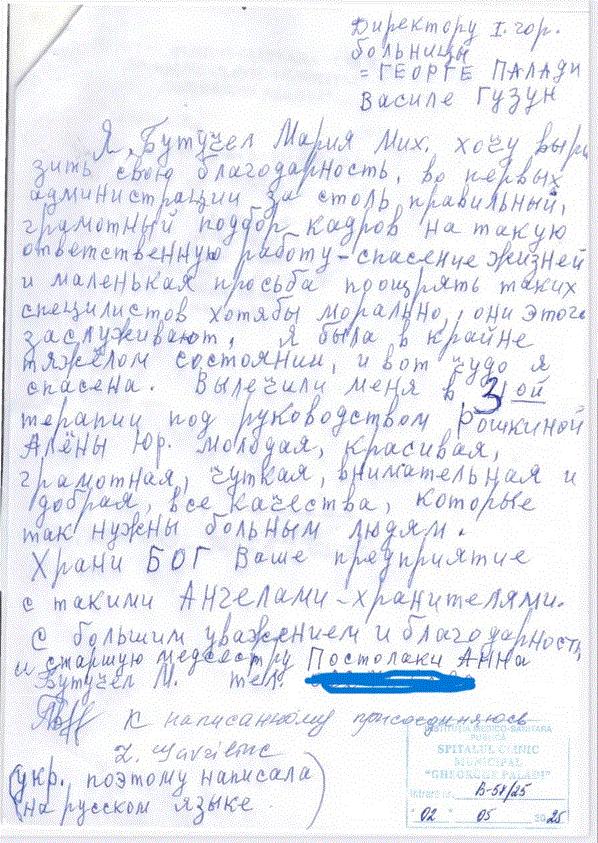 Директору I. гор.
больницы
= ГЕОРГЕ ПАЛАДИ
Василе ГУЗУН
Я, Бутучел Мария Мих. хочу выра
зить свою благодарность, во первых
администрации за столь правильный,
грамотный подбор кадров на такую
ответственную работу – спасение жизней
и маленькая просьба поощрять таких
специлистов хотябы морально, они этого
заслуживают. Я была в крайне
тяжёлом состоянии, и вот чудо я
спасена. Вылечили меня в 3 ой
терапии под руководством Рошкиной
Алёны Юр. молодая, красивая,
грамотная, чуткая, внимательная и
добрая, все качества, которые
так нужны больным людям.
Храни БОГ Ваше предприятие
с такими Ангелами-хранителями.
С большим уважением и благодарность
и старшую медсестру Постолаки Анна
Бутучел М. тел.
К написанному присоединяюсь
(укр., поэтому написала
на русском языке.)
INSTITUȚIA MEDICO-SANITARĂ
PUBLICĂ
SPITALUL CLINIC
MUNICIPAL
"GHEORGHE PALADI"
Intrare nr. B-58/25
"02" 05 2025